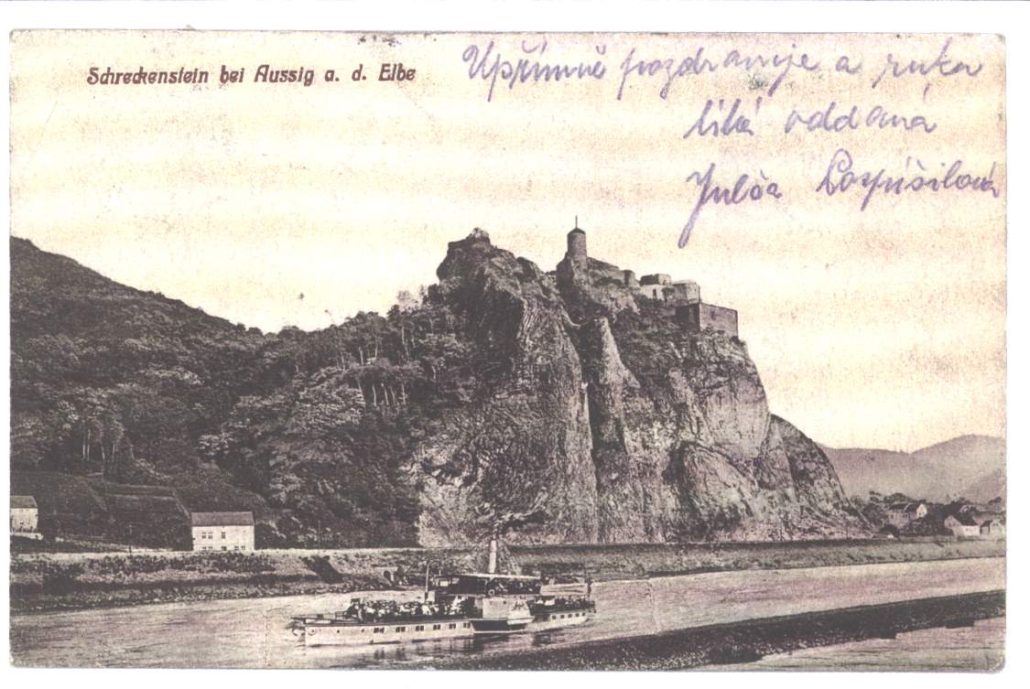 Schreckenstein bei Aussig a. d. Elbe
Upřímně pozdravuje a ruku
líbá oddaná
Julča Pospíšilová